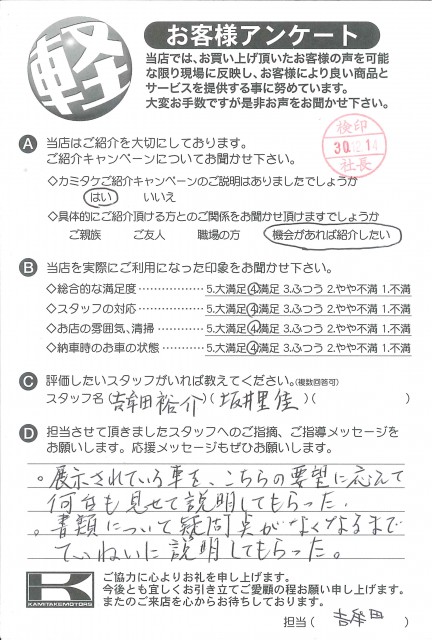 軽
お客様アンケート
当店では、お買い上げ頂いたお客様の声を可能
な限り現場に反映し、お客様により良い商品と
サービスを提供する事に努めています。
大変お手数ですが是非お声をお聞かせ下さい。
検印
30.12.14
社長
A 当店はご紹介を大切にしております。
ご紹介キャンペーンについてお聞かせ下さい。
◇カミタケご紹介キャンペーンのご説明はありましたでしょうか
はい いいえ
◇具体的にご紹介頂ける方とのご関係をお聞かせ頂けますでしょうか
ご親族 ご友人 職場の方 機会があれば紹介したい
B 当店を実際にご利用になった印象をお聞かせ下さい。
◇総合的な満足度‥‥‥‥‥‥ 5.大満足 4.満足 3.ふつう 2.やや不満 1.不満
◇スタッフの対応‥‥‥‥‥‥ 5.大満足 4.満足 3.ふつう 2.やや不満 1.不満
◇お店の雰囲気、清掃‥‥‥‥ 5.大満足 4.満足 3.ふつう 2.やや不満 1.不満
◇納車時のお車の状態‥‥‥‥ 5.大満足 4.満足 3.ふつう 2.やや不満 1.不満
C 評価したいスタッフがいれば教えてください。(複数回答可)
スタッフ名(吉牟田裕介)(坂井里佳)( )
D 担当させて頂きましたスタッフへのご指摘、ご指導メッセージを
お願いします。応援メッセージもぜひお願いします。
。展示されている車を、こちらの要望に応えて
何台も見せて説明してもらった。
。書類について疑問点がなくなるまで
ていねいに説明してもらった。
K
KAMITAKEMOTORS
ご協力に心よりお礼を申し上げます。
今後とも宜しくお引き立てご愛顧の程お願い申し上げます。
またのご来店を心からお待ちしております。
担当( 吉牟田 )